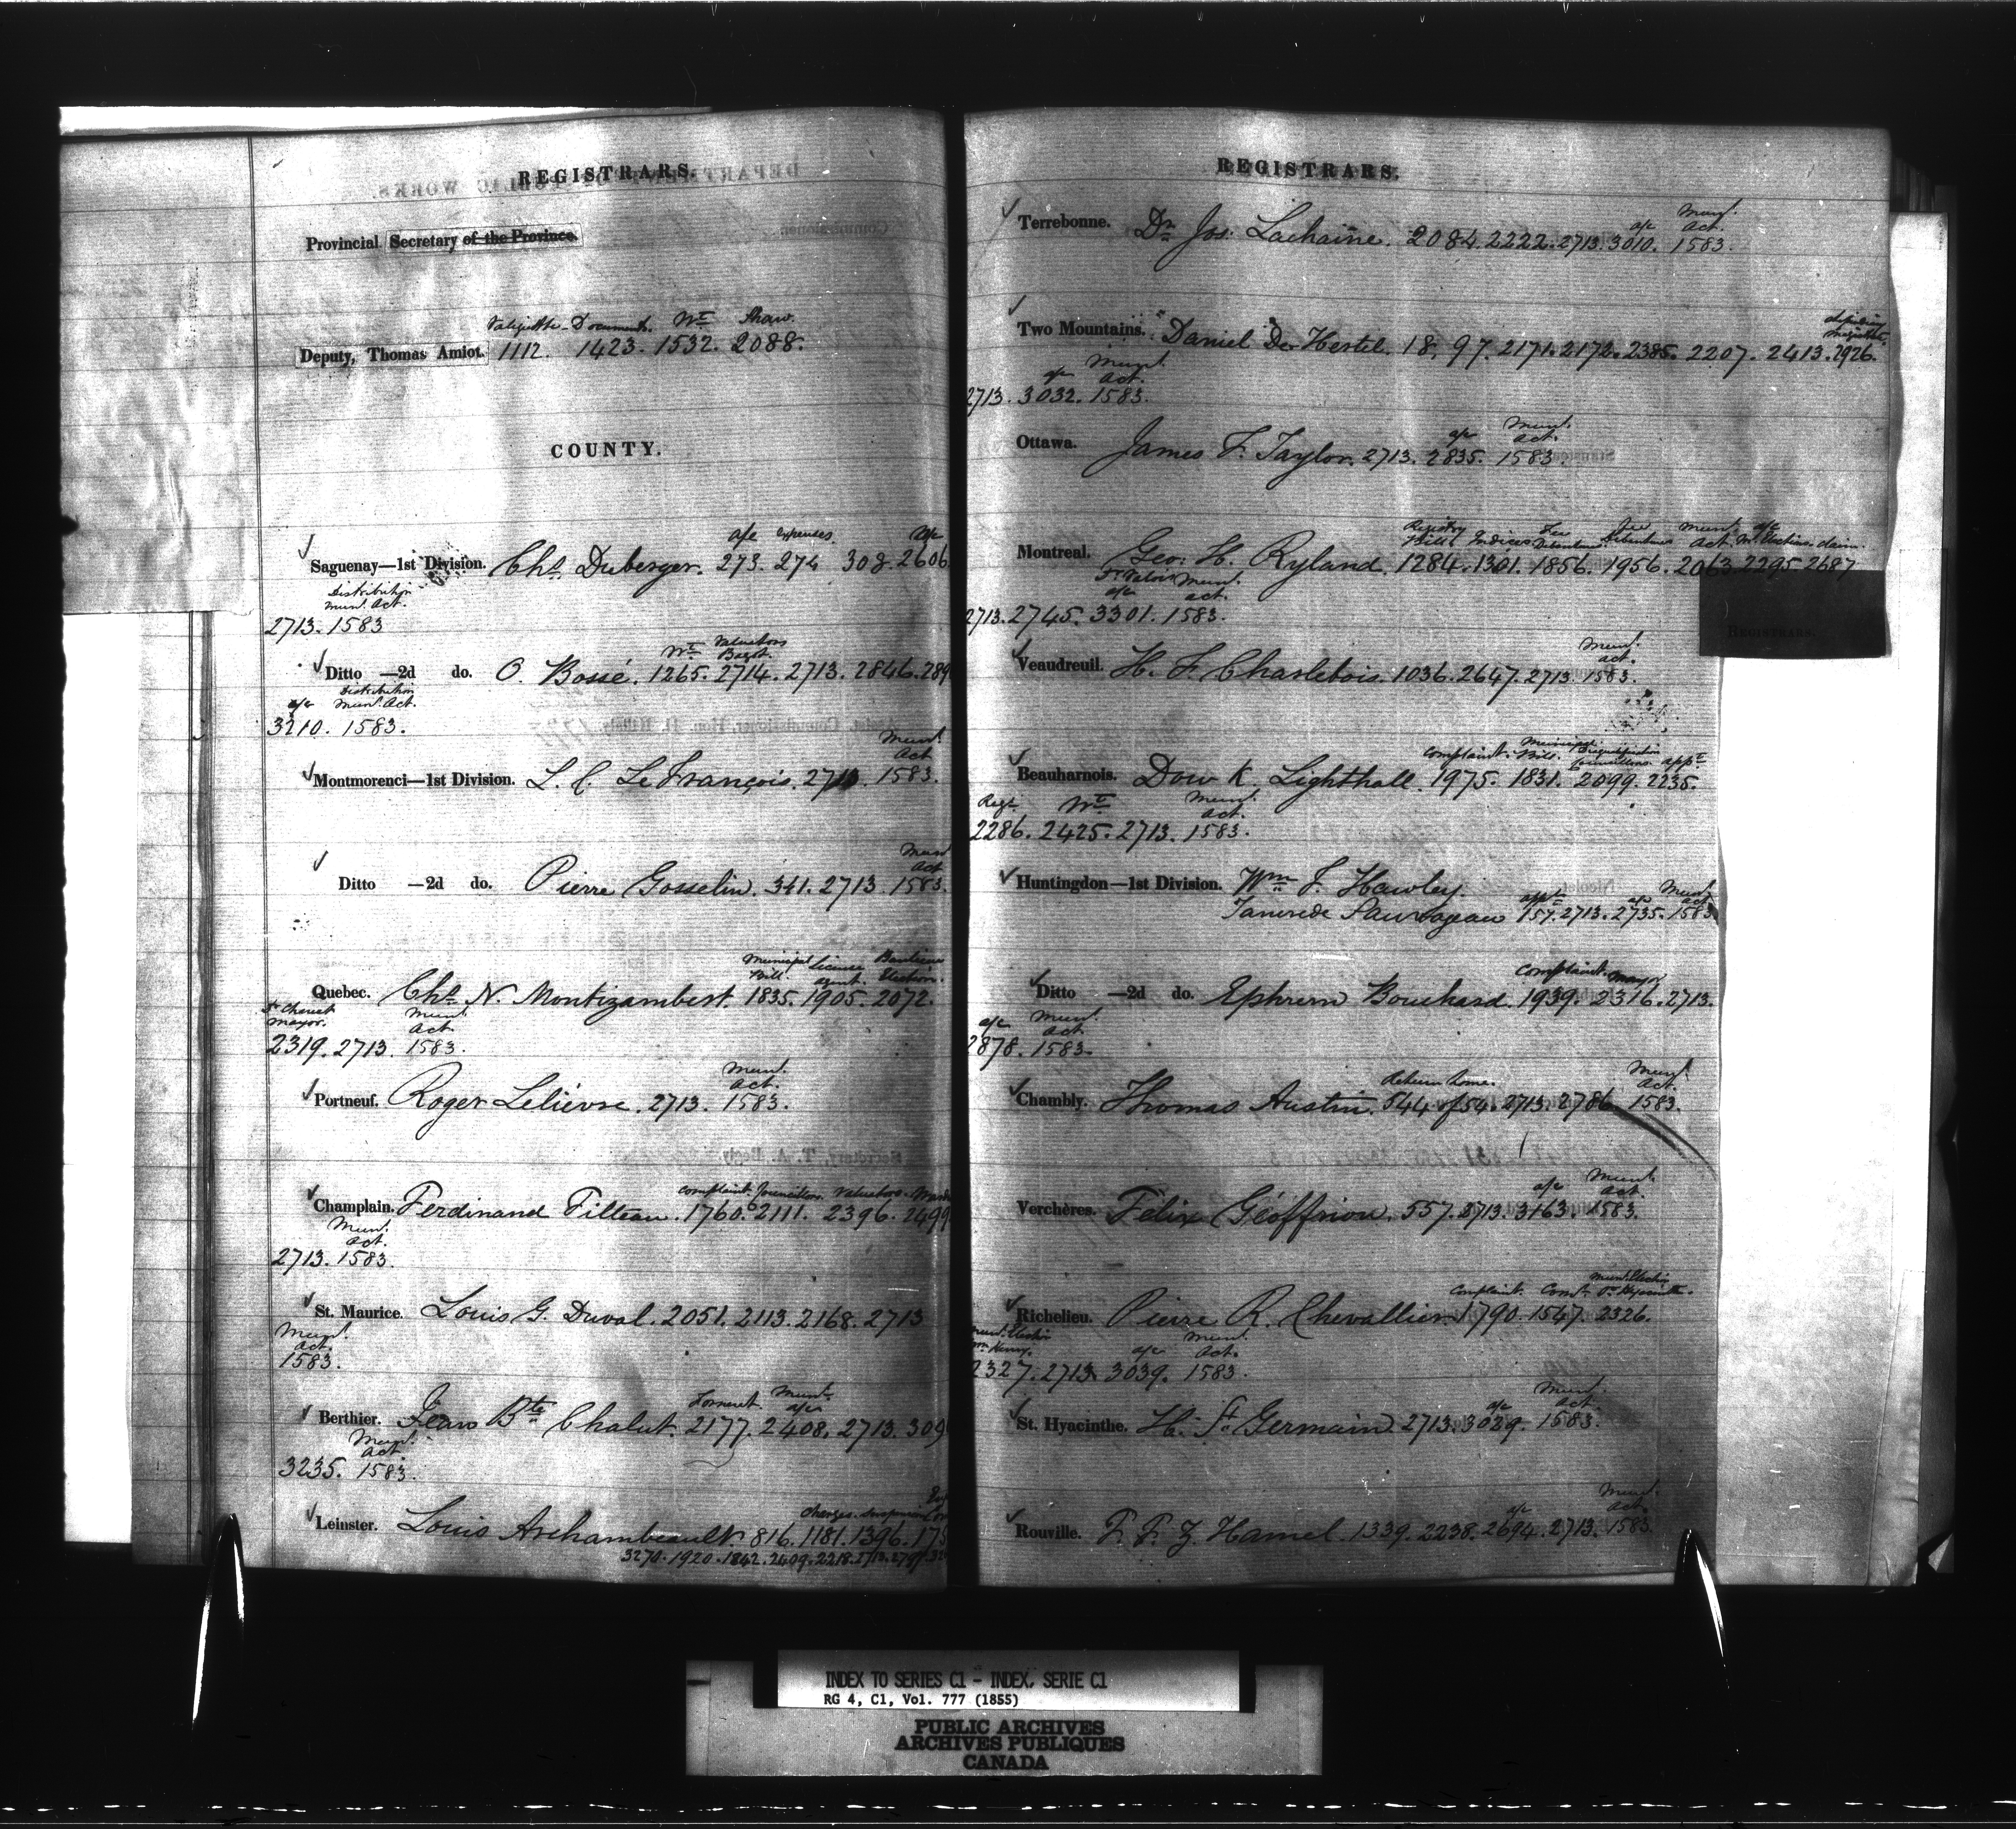 REGISTRARS.
Provincial Secretary of the Province.
Documents. Wt Shaw.
Deputy, Thomas Amiot. 1112. 1423. 1532. 2088.
COUNTY.
a/c expenses. a/c
Saguenay—1st Division. Chs Duberger. 273. 274 308. 2606
Distribution
Mun. Act.
2713. 1583
Wt Valuators
Bagot.
Ditto —2d do. O. Bossé. 1265. 2714. 2713. 2846. 289
Distribution
a/c Mun. Act.
3210. 1583.
Mun.
Act
Montmorenci—1st Division. L. C. LeFrançois. 2713. 1583.
Mun.
Act
Ditto —2d do. Pierre Gosselin. 341. 2713. 1583.
Municipal Licence
Bill. agent. Election.
Quebec. Chs N. Montizambert. 1835. 1905. 2072.
Mayor. Mun.
Act
2319. 2713. 1583.
Mun.
Act.
Portneuf. Roger Lelièvre. 2713. 1583.
Complaint. Councillors. Valuators.
Champlain. Ferdinand Filteau. 1760. 2111. 2396. 2499
Mun.
Act.
2713. 1583.
St. Maurice. Louis G. Duval. 2051. 2113. 2168. 2713
Mun.
Act.
1583.
Mun.
a/c
Berthier. Jean Bte Chalut. 2177. 2408. 2713. 309
Mun.
Act.
3235. 1583.
Charges. Suspension
Leinster. Louis Archambeault. 816. 1181. 1396. 175
3270. 1920. 1842. 2409. 2218. 2713. 2797. 32
REGISTRARS.
Mun.
a/c Act.
Terrebonne. Dr Jos. Lachaine. 2084. 2222. 2713. 3010. 1583.
Two Mountains. "Daniel De Hertel. 18. 97. 2171. 2172. 2385. 2207. 2413. 2926.
Mun.
a/c Act.
2713. 3032. 1583.
Mun.
a/c Act.
Ottawa. James F. Taylor. 2713. 2835. 1583.
Registry Fee Fee Mun. a/c
Bill. Indices Debentures Debentures Act. Mr. Elections. claim.
Montreal. Geo. H. Ryland. 1284. 1301. 1856. 1956. 2063. 2295. 2687
Mun.
a/c act.
2713. 2745. 3301. 1583.
REGISTRARS.
Mun.
act.
Veaudreuil. H. F. Charlebois. 1036. 2647. 2713. 1583.
Municipal
Complaint. Bill. Councillors. appt
Beauharnois. Dow K. Lighthall. 1975. 1831. 2099. 2235.
Regt Wt Mun.
Act.
2286. 2425. 2713. 1583.
Huntingdon—1st Division. Wm F. Hawley.
Mun.
appt a/c act
Tancrede Sauvageau 157. 2713. 2735. 1583
Complaint. Mayor
Ditto —2d do. Ephrem Bouchard. 1939. 2316. 2713.
Mun.
a/c act
2878. 1583.
Mun.
Act.
Chambly. Thomas Austin. 544 of 54. 2713. 2786. 1583.
Mun.
a/c Act.
Verchères. Félix Géoffrion. 557. 2713. 3163. 1583.
Mun. Election
Complaint. St Hyacinthe.
Richelieu. Pierre R. Chevallier 1790. 1547. 2326.
Mun. Election Mun.
a/c Act.
2327. 2713. 3039. 1583.
Mun.
a/c Act.
St. Hyacinthe. H. St Germain 2713. 3029. 1583.
Mun.
a/c Act.
Rouville. F. F. Z. Hamel. 1339. 2238. 2694. 2713. 1583.
INDEX TO SERIES C1 - INDEX, SERIE C1
RG 4, C1, Vol. 777 (1855)
PUBLIC ARCHIVES
ARCHIVES PUBLIQUES
CANADA